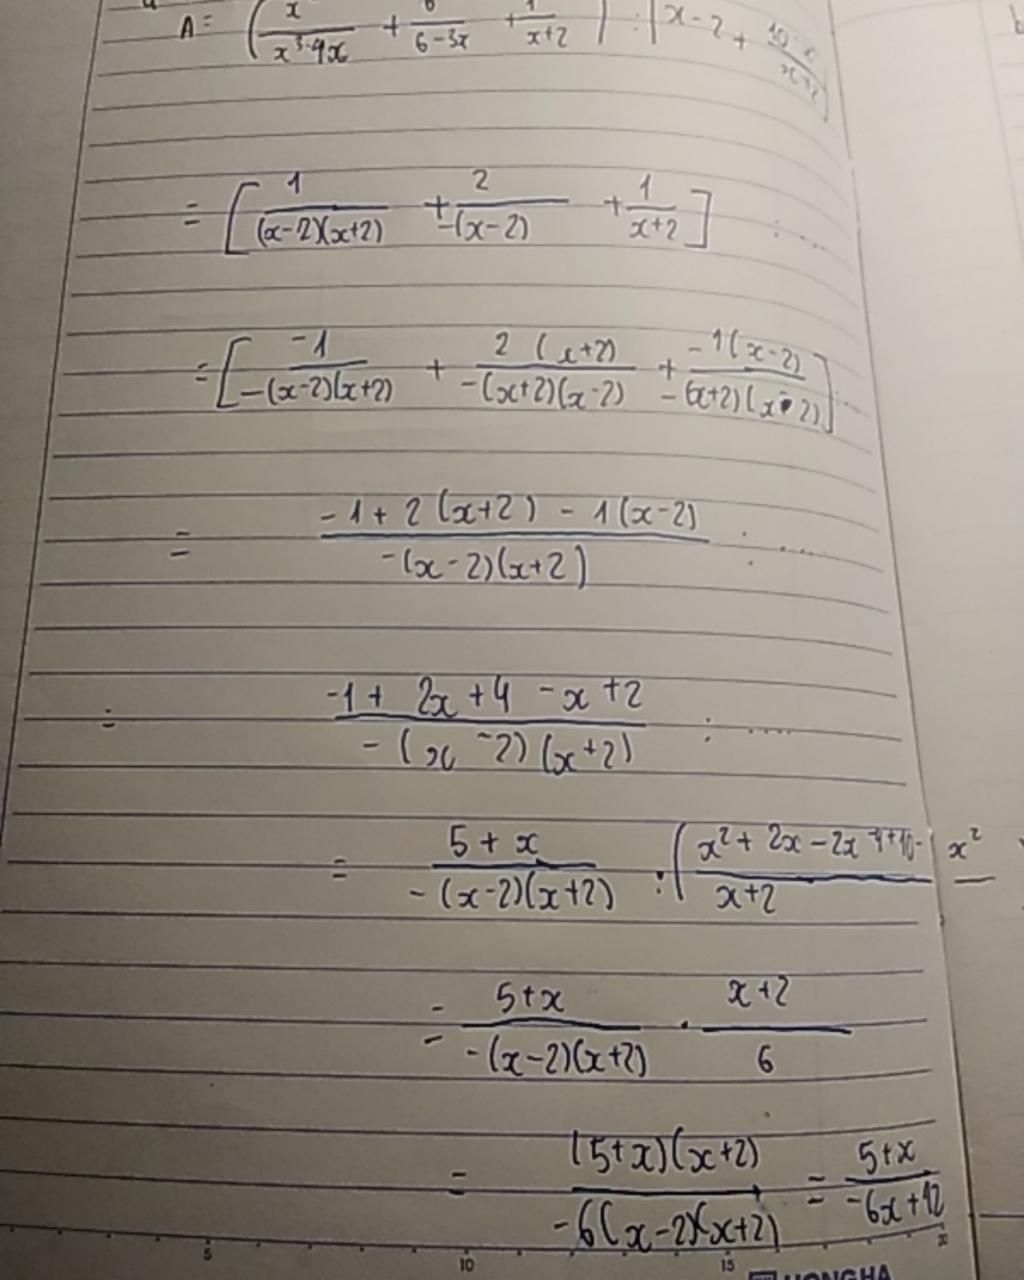 A = (x / (x³-4x) + 6 / (6-3x) + 1 / (x+2)) : (x-2 + (10-x²) / (x+2))
= [1 / ((x-2)(x+2)) + 2 / (-(x-2)) + 1 / (x+2)] : ....
= [-1 / (-(x-2)(x+2)) + 2(x+2) / (-(x+2)(x-2)) + -1(x-2) / (-(x+2)(x-2))] ....
= (-1+2(x+2)-1(x-2)) / (-(x-2)(x+2)) : ....
= (-1+2x+4-x+2) / (-(x-2)(x+2)) : ....
= (5+x) / (-(x-2)(x+2)) : ((x²+2x-2x-4+10-x²) / (x+2)
= (5+x) / (-(x-2)(x+2)) . (x+2) / 6
= (5+x)(x+2) / (-6(x-2)(x+2)) = (5+x) / (-6x+12)
5 10 15 20
HONGHA